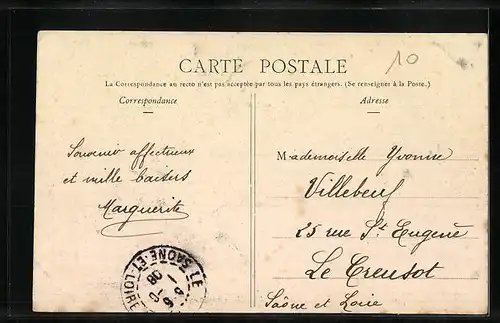 10
CARTE POSTALE
La Correspondance au recto n'est pas acceptée par tous les pays étrangers. (Se renseigner à la Poste.)
Correspondance
Adresse
Souvenir affectueux
et mille baisers
Marguerite
Mademoiselle Yvonne
Villebeuf
25 rue St Eugène
Le Creusot
Saône et Loire
LE
SAONE-ET-LOIRE
08